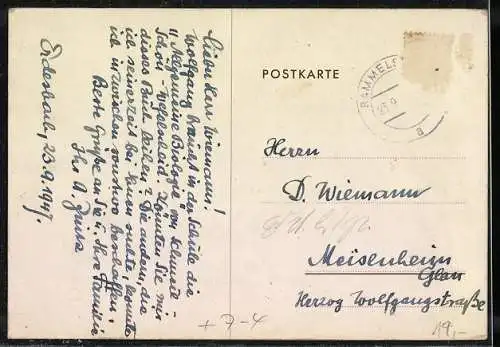 Lieber Herr Wiemann!
Wolfgang braucht in der Schule die
"Allgemeine Biologie von Schmeil -
Schött - Wefelscheid. Könnten Sie mir
dieses Buch leihen? Die andern, die
ich seinerzeit bei Ihnen suchte, konnte
ich inzwischen beschaffen.
Beste Grüße an Sie u. Ihre Familie
Ihr A.
Erdesbach, 23.9.1947.
POSTKARTE
RAMMELS
23.9
a
Herrn
D. Wiemann
Meisenheim
Glan
Herzog Wolfgangstraße
+ 7-4
19,-